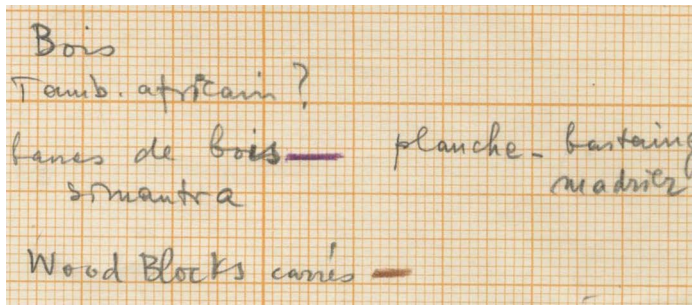 Bois
Tamb. africain ?
barres de bois planche - bastaing
simantra madrier
Wood Blocks carrés